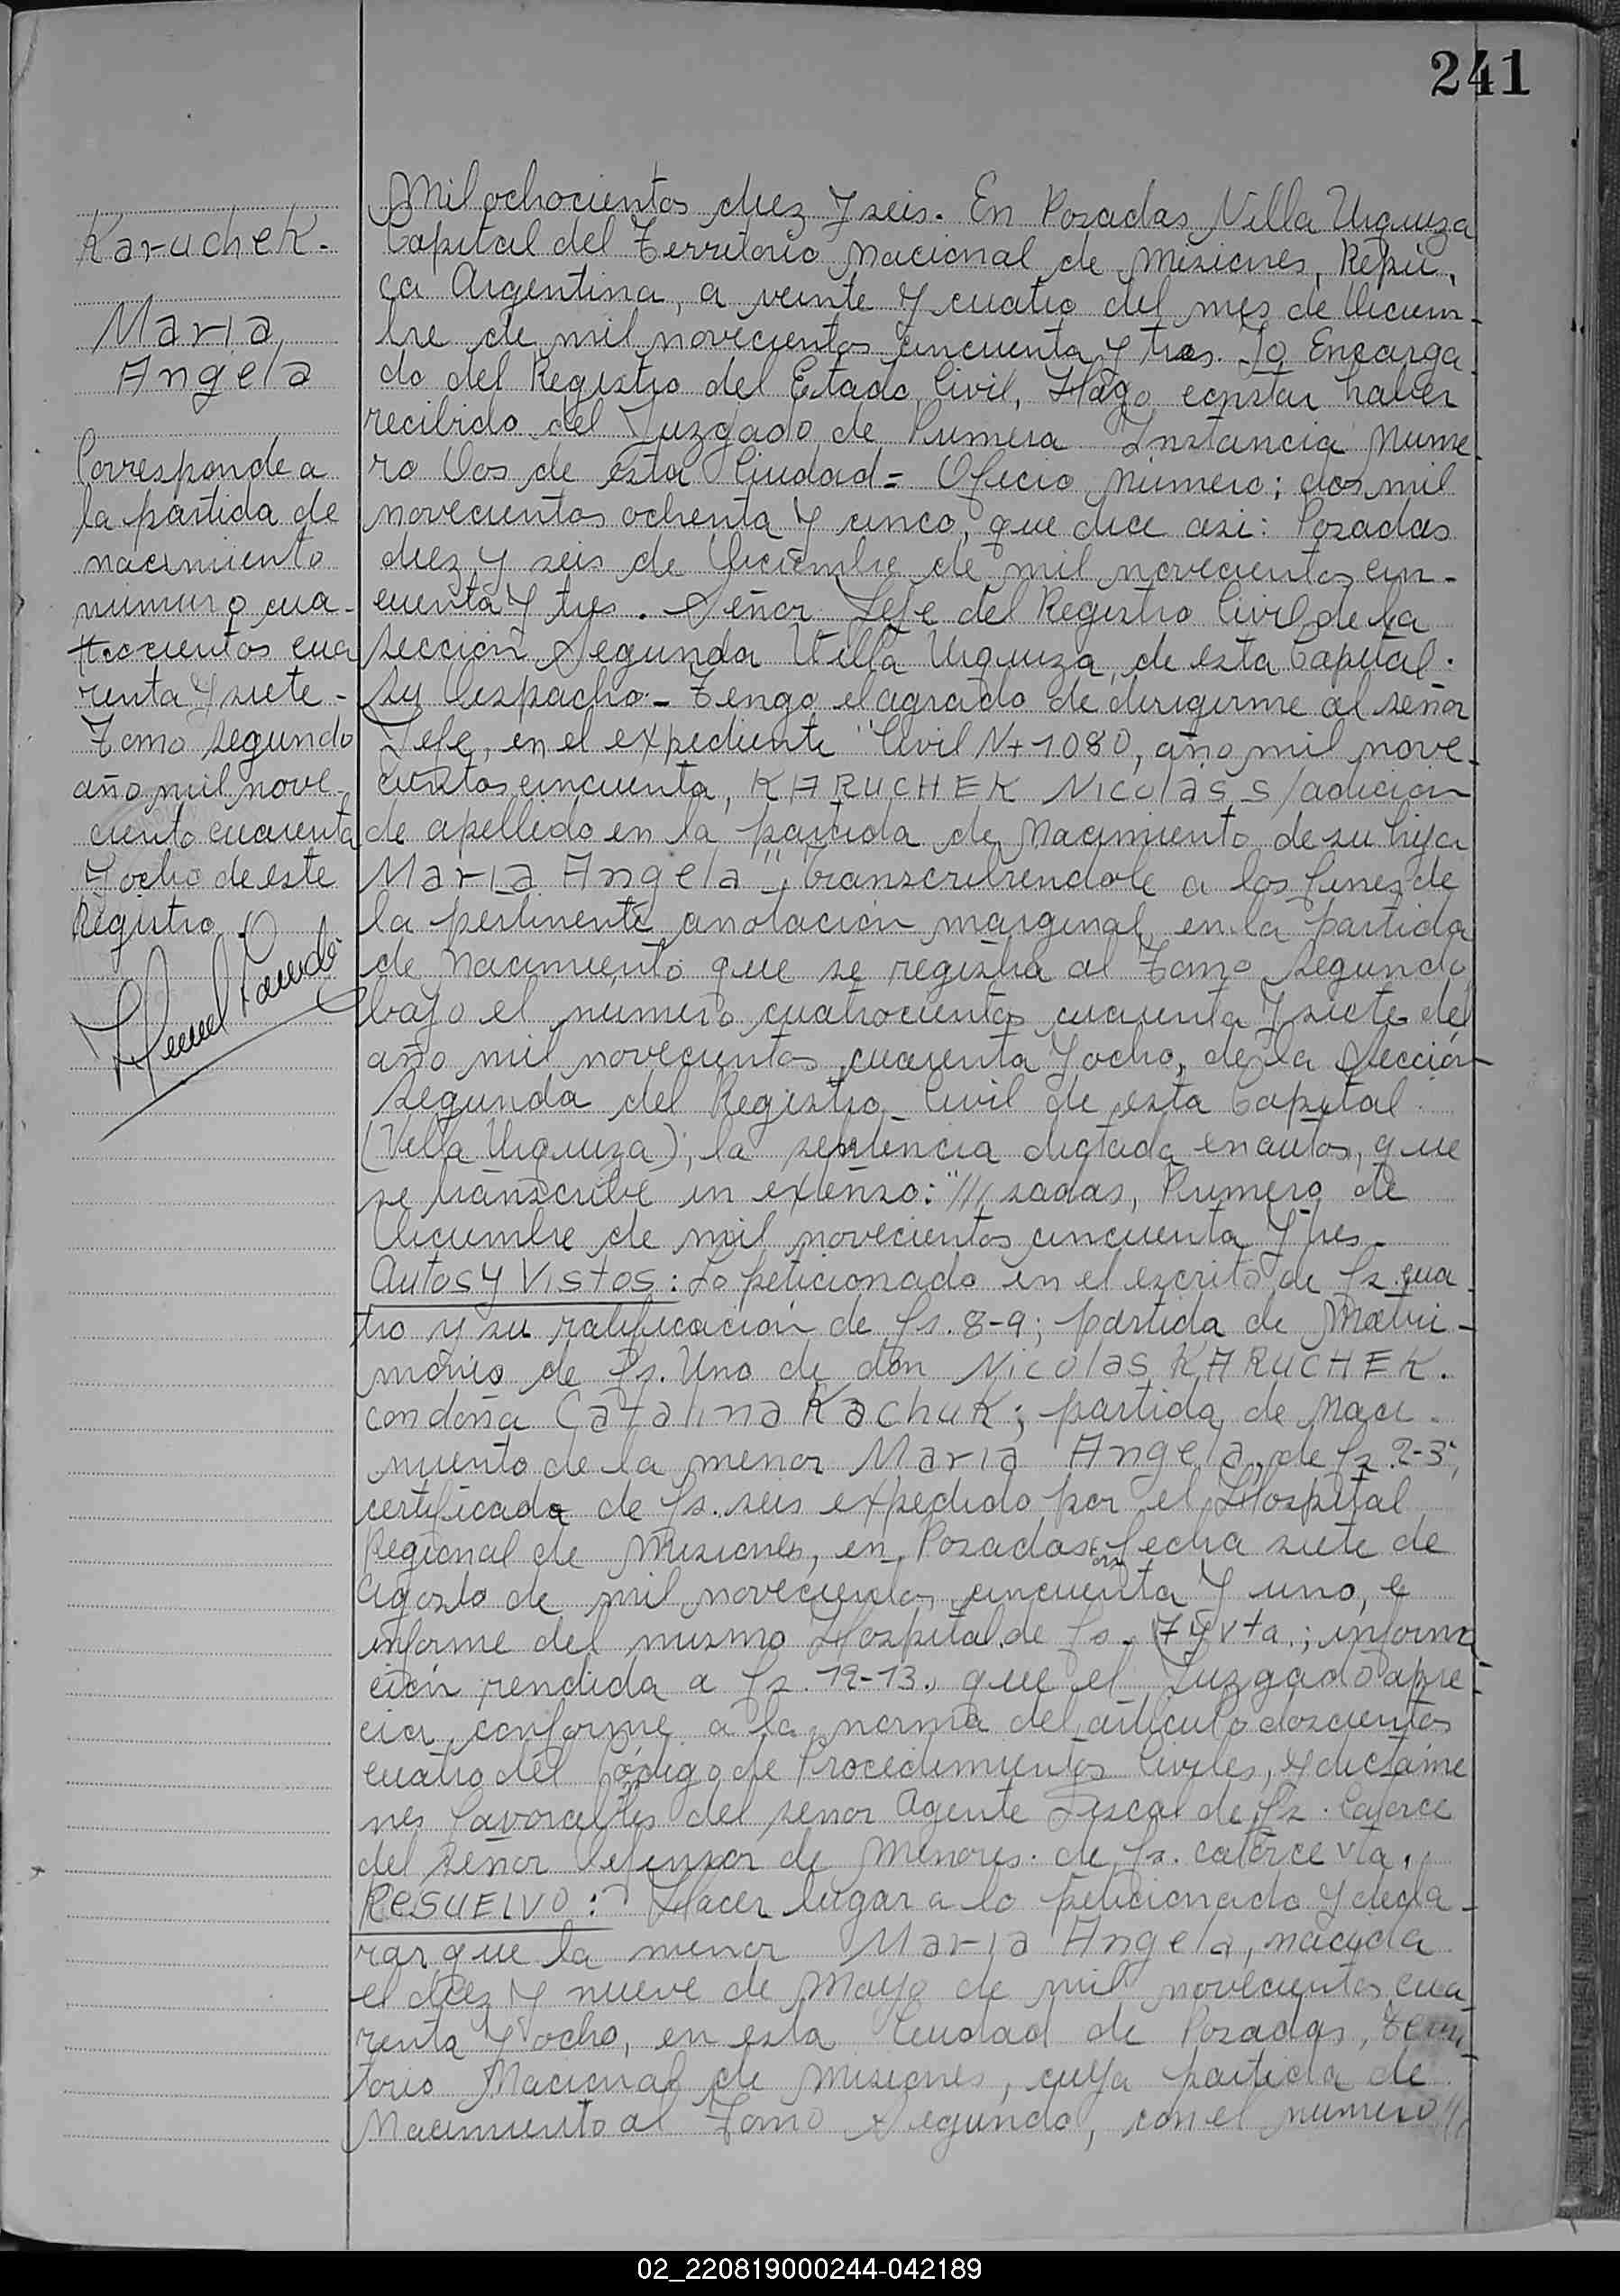 241
Karuchek.
Maria
Angela
Corresponde a
la partida de
nacimiento
numero cua-
trocientos cua
renta y siete -
Tomo segundo
año mil nove-
ciento cuarenta
y ocho de este
Registro.
Mil ochocientos diez y seis. En Posadas Villa Urquiza
Capital del Territorio Nacional de Misiones, Repú,
ca Argentina, a veinte y cuatro del mes de Diciem-
bre de mil novecientos cincuenta y tres. Yo Encarga
do del Registro del Estado Civil, Hago constar haber
recibido del Juzgado de Primera Instancia Nume-
ro Dos de esta Ciudad = Oficio Número; dos mil
novecientos ochenta y cinco, que dice asi: Posadas
diez y seis de Diciembre de mil novecientos cin-
cuenta y tres. Señor Jefe del Registro Civil de la
sección Segunda Villa Urquiza, de esta Capital.
Su Despacho - Tengo el agrado de dirigirme al señor
Jefe, en el expediente "Civil N+ 1080, año mil nove-
cientos cincuenta, KARUCHEK Nicolas s/adicion
de apellido en la partida de Nacimiento de su hija
Maria Angela", transcribiendole a los fines de
la pertinente anotación marginal, en la partida
de Nacimiento que se registra al Tomo segundo
bajo el número cuatrocientos cuarenta y siete del
año mil novecientos cuarenta y ocho, de la Sección
segunda del Registro Civil de esta Capital.
(Villa Urquiza); la sentencia dictada en autos, que
se transcribe in extenso: "/// sadas, Primero de
Diciembre de mil novecientos cincuenta y tres.
Autos y Vistos: Lo peticionado en el escrito de fs. cua
tro y su ratificación de fs. 8-9; partida de Matri-
monio de fs. Uno de don Nicolas KARUCHEK.
con doña Catalina Kachuk; partida de Naci-
miento de la menor Maria Angela, de fs. 2-3;
certificado de fs. seis expedido por el Hospital
Regional de Misiones, en Posadas con fecha siete de
Agosto de mil novecientos cincuenta y uno, e
informe del mismo Hospital de fs. 7 y vta.; informa
ción rendida a fs. 12-13., que el Juzgado apre-
cia conforme a la norma del artículo doscientos
cuatro del Código de Procedimientos Civiles, y dictáme
nes favorables del señor Agente Fiscal de fs. Catorce
del señor Defensor de Menores. de fs. catorce vta.,
RESUELVO: Hacer lugar a lo peticionado y decla-
rar que la menor Maria Angela, nacida
el diez y nueve de Mayo de mil novecientos cua-
renta y ocho, en esta Ciudad de Posadas, Terri-
torio Nacional de Misiones, cuya partida de
Nacimiento al Tomo Segundo, con el numero //
02_220819000244-042189